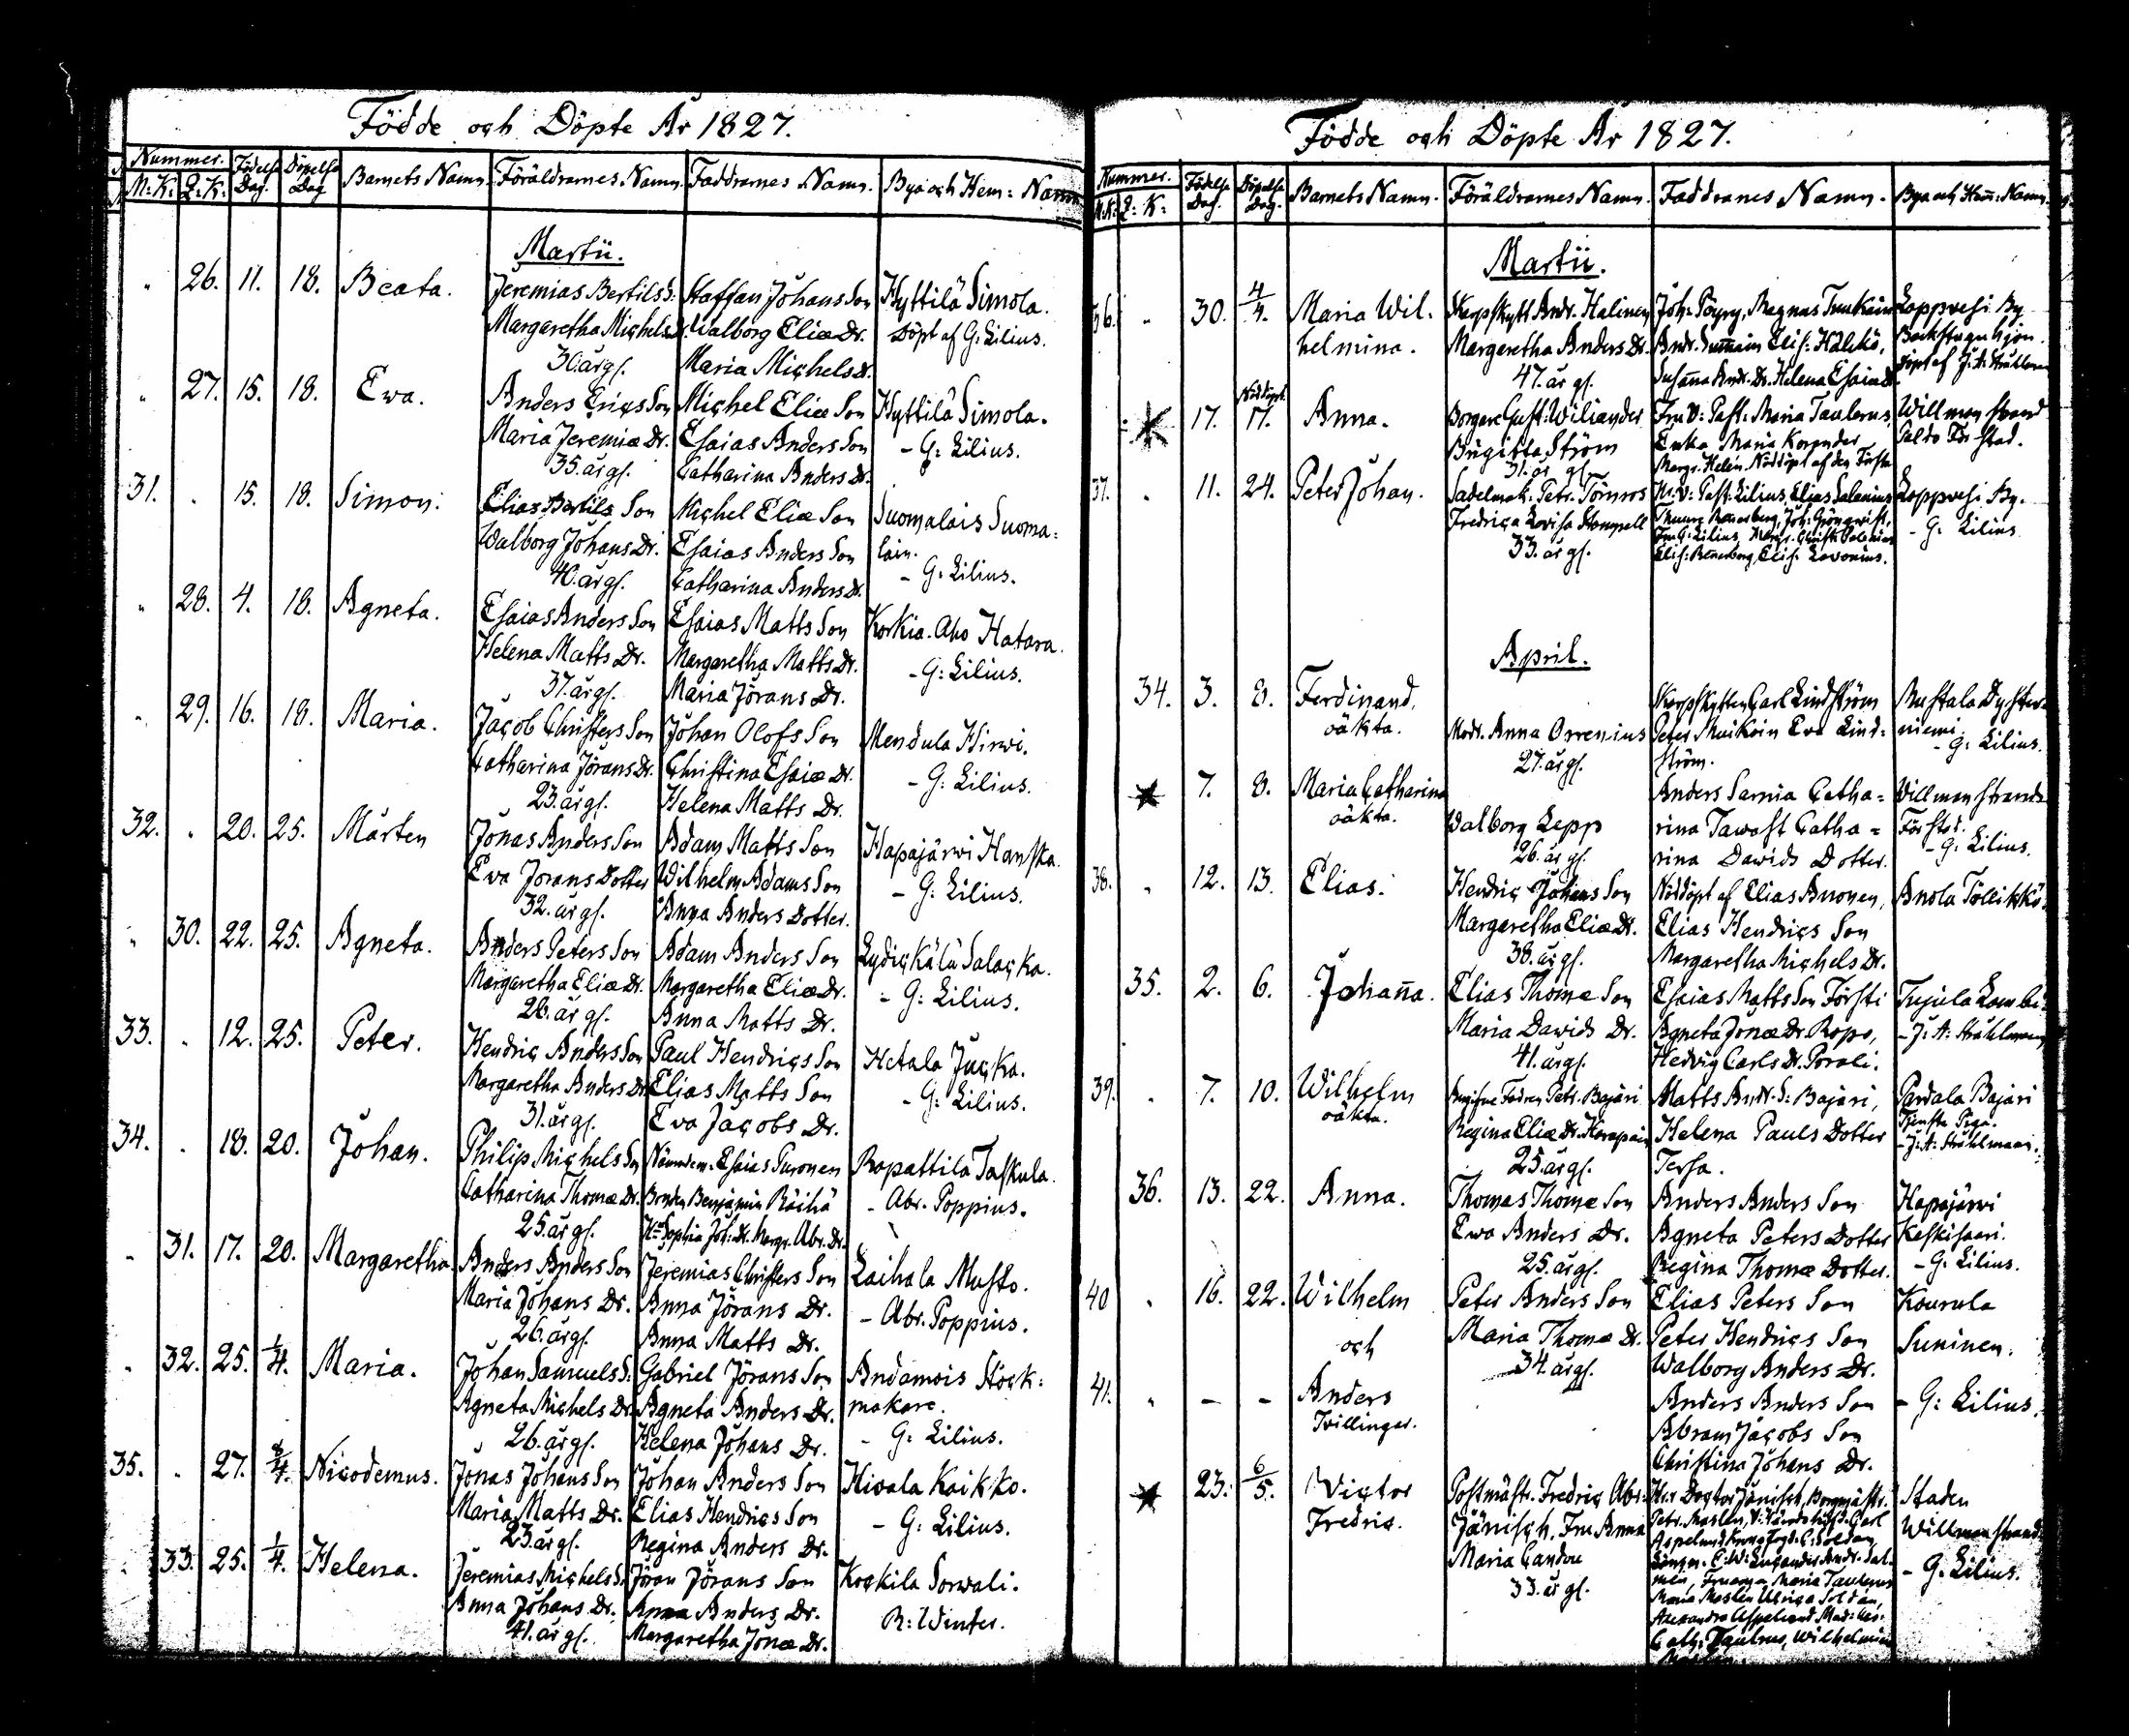 Födde och Döpte År 1827.
Nummer. Födelse Dag. Döpelse Dag Barnets Namn. Föräldrarnes Namn. Faddrarnes Namn. Bya och Hem: Namn
M: K: Q: K:
Martii.
" 26. 11. 18. Beata. Jeremias Bertils S: Staffan Johans Son Hyttilä Simola.
Margaretha Michels Dr. Walborg Eliæ Dr. Döpt af G: Lilius.
30. år gl. Maria Michels Dr.
" 27. 15. 18. Ewa. Anders Erics Son Michel Eliæ Son Hyttilä Simola.
Maria Jeremiæ Dr. Esaias Anders Son - G: Lilius.
35. år gl. Catharina Anders Dr.
31. " 15. 18. Simon. Elias Bertils Son Michel Eliæ Son Suomalais Suoma=
Walborg Johans Dr. Esaias Anders Son lain.
40. år gl. Catharina Anders Dr. - G: Lilius.
" 28. 4. 18. Agneta. Esaias Anders Son Esaias Matts Son Korkia-Aho Hatara.
Helena Matts Dr. Margaretha Matts Dr. - G: Lilius.
37. år gl. Maria Jörans Dr.
" 29. 16. 18. Maria. Jacob Christers Son Johan Olofs Son Mendula Hirwi.
Catharina Jörans Dr. Christina Esaiæ Dr. - G: Lilius.
23. år gl. Helena Matts Dr.
32. " 20. 25. Mårten Jonas Anders Son Adam Matts Son Hapajärwi Hanska.
Eva Jorans Dotter Wilhelm Adams Son - G: Lilius.
32. år gl. Anna Anders Dotter.
" 30. 22. 25. Agneta. Anders Peters Son Adam Anders Son Lydickälä Salacka.
Margaretha Eliæ Dr. Margaretha Eliæ Dr. - G: Lilius.
28. år gl. Anna Matts Dr.
33. " 12. 25. Peter. Hendric Anders Son Paul Hendrics Son Hetala Jucka.
Margaretha Anders Dr. Elias Matts Son - G: Lilius.
31. år gl. Eva Jacobs Dr.
34. " 18. 20. Johan. Philip Michels Son Nämndem. Esaias Puronen Rapattila Taskula.
Catharina Thomæ Dr. Bonden Benjamin Räihä - Abr. Poppius.
25. år gl. Sophia Joh: Dr. Margr. Abr. Dr.
" 31. 17. 20. Margaretha Anders Anders Son Jeremias Christers Son Laihala Musto.
Maria Johans Dr. Anna Jörans Dr. - Abr. Poppius.
26. år gl. Anna Matts Dr.
" 32. 25. 1/4. Maria. Johan Samuels S: Gabriel Jörans Son Andamois Stock=
Agneta Michels Dr. Agneta Anders Dr. makare.
26. år gl. Helena Johans Dr. - G: Lilius.
35. " 27. 8/4. Nicodemus. Jonas Johans Son Johan Anders Son Hivala Kaikko.
Maria Matts Dr. Elias Hendrics Son - G: Lilius.
23. år gl. Regina Anders Dr.
" 33. 25. 1/4. Helena. Jeremias Michels S: Jöran Jörans Son Kockila Sorwali.
Anna Johans Dr. Anna Anders Dr. R: Winter.
41. år gl. Margaretha Jonæ Dr.
Födde och Döpte År 1827.
Nummer. Födelse Dag. Döpelse Dag. Barnets Namn. Föräldrarnes Namn. Faddrarnes Namn. Bya och Hem: Namn.
M: K: Q: K:
Martii.
36. " 30. 4/4. Maria Wil= Skarpskytt Andr. Halinen Joh: Pöyry, Magnus Lappvesi By
helmina. Margaretha Anders Dr. Andr. Elis: Halkö,
47. år gl. Susanna Andr. Dr. Helena Esaiæ Dr. döpt af J: A: Stråhlman
17. Nöddöpt 17. Anna. Borgare Gust: Wiliander Fru V: Past: Maria Taulerus, Willmanstrand
Birgitta Ström Maria För stad.
31. år gl. Margr. Helen. Nöddöpt af den Första
37. " 11. 24. Peter Johan. Sadelmak: Petr. Törnros Hr. V: Past: Lilius, Elias Salenius Lappvesi By.
Fredrica Lovisa - G: Lilius
33. år gl. Elis: Elis: Lavonius.
April.
34. 3. 8. Ferdinand, Skarpskytten Carl Lindström Mustala Dyster=
oäkta. Modr. Anna Orrenius Peter Muikoin Eva Lind= niemi.
27. år gl. ström. - G: Lilius.
7. 8. Maria Catharina Anders Sarnia Catha= Willmanstrands
oäkta. Walborg Lepp rina Tawast Catha= Förstad.
26. år gl. rina Dawids Dotter. - G: Lilius.
38. " 12. 13. Elias. Hendric Johans Son Nöddöpt af Elias Anonen, Anola Töllikkö.
Margaretha Eliæ Dr. Elias Hendrics Son
38. år gl. Margaretha Michels Dr.
35. 2. 6. Johanna. Elias Thomæ Son Esaias Matts Son Försti Tujula
Maria Dawids Dr. Agneta Jonæ Dr. Ropo, - J: A: Stråhlman
41. år gl. Hedvig Carls Dr. Porali.
39. " 7. 10. Wilhelm Petr. Bajari Matts Andr. S: Bajari, Pardala Bajari
oäkta. Regina Eliæ Dr. Helena Pauls Dotter Tjenste Piga.
25. år gl. Tersa. - J: A: Stråhlman.
36. 13. 22. Anna. Thomas Thomæ Son Anders Anders Son Hapajärwi
Ewa Anders Dr. Agneta Peters Dotter Keskisaari.
25. år gl. Regina Thomæ Dotter. - G: Lilius.
40 " 16. 22. Wilhelm Peter Anders Son Elias Peters Son Kourula
och Maria Thomæ Dr. Peter Hendrics Son Suninen.
34. år gl. Walborg Anders Dr.
41. " - - Anders Anders Anders Son - G: Lilius.
Tvillingar. Abram Jacobs Son
Christina Johans Dr.
23. 6/5. Victor Postmästr. Fredric Abr: Hr Doctor Jänisch, Borgmästr. Staden
Fredric. Jänisch, Fru Anna Petr. Maslin, Carl Willmanstrand
Maria Candou - G: Lilius.
33. år gl. Maria Taulerus
Maria Maslin Ulrica Soldan,
Alexandra Aspelund
Cath: Taulerus, Wilhelmina